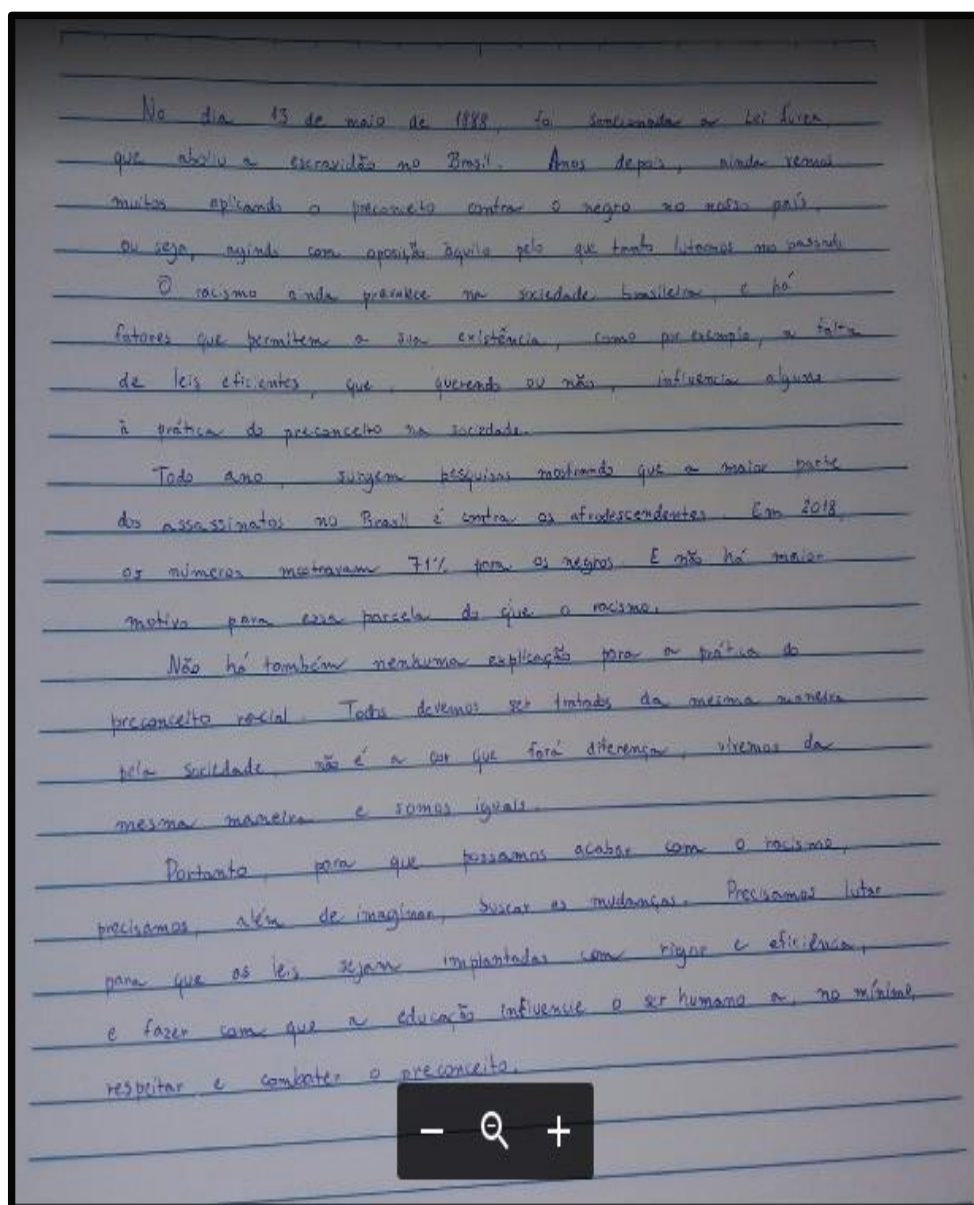 No dia 13 de maio de 1888, foi sancionada a Lei Áurea,
que aboliu a escravidão no Brasil. Anos depois, ainda vemos
muitos aplicando o preconceito contra o negro no nosso país,
ou seja, agindo com oposição àquilo pelo que tanto lutamos no passado
O racismo ainda prevalece na sociedade brasileira, e há
fatores que permitem a sua existência, como por exemplo, a falta
de leis eficientes, que, querendo ou não, influencia alguns
à prática do preconceito na sociedade.
Todo ano, surgem pesquisas mostrando que a maior parte
dos assassinatos no Brasil é contra os afrodescendentes. Em 2018,
os números mostravam 71% para os negros. E não há maior
motivo para essa parcela do que o racismo.
Não há também nenhuma explicação para a prática do
preconceito racial. Todos devemos ser tratados da mesma maneira
pela sociedade, não é a cor que fará diferença, vivemos da
mesma maneira e somos iguais.
Portanto, para que possamos acabar com o racismo,
precisamos, além de imaginar, buscar as mudanças. Precisamos lutar
para que as leis sejam implantadas com rigor e eficiência,
e fazer com que a educação influencie o ser humano a, no mínimo,
respeitar e combater o preconceito.